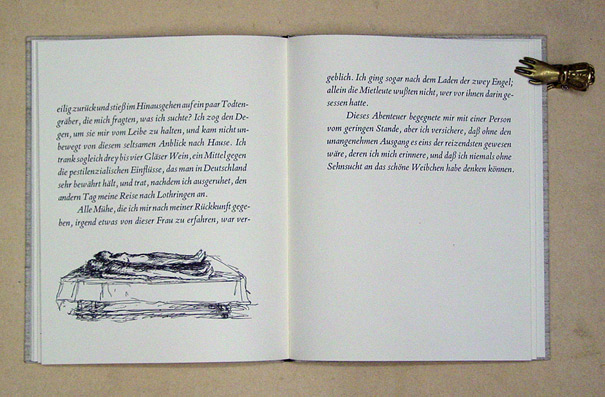 eilig zurück und stieß im Hinausgehen auf ein paar Todten-
gräber, die mich fragten, was ich suchte? Ich zog den De-
gen, um sie mir vom Leibe zu halten, und kam nicht un-
bewegt von diesem seltsamen Anblick nach Hause. Ich
trank sogleich drey bis vier Gläser Wein, ein Mittel gegen
die pestilenzialischen Einflüsse, das man in Deutschland
sehr bewährt hält, und trat, nachdem ich ausgeruhet, den
andern Tag meine Reise nach Lothringen an.
Alle Mühe, die ich mir nach meiner Rückkunft gege-
ben, irgend etwas von dieser Frau zu erfahren, war ver-
geblich. Ich ging sogar nach dem Laden der zwey Engel;
allein die Mietleute wußten nicht, wer vor ihnen darin ge-
sessen hatte.
Dieses Abenteuer begegnete mir mit einer Person
vom geringen Stande, aber ich versichere, daß ohne den
unangenehmen Ausgang es eins der reizendsten gewesen
wäre, deren ich mich erinnere, und daß ich niemals ohne
Sehnsucht an das schöne Weibchen habe denken können.